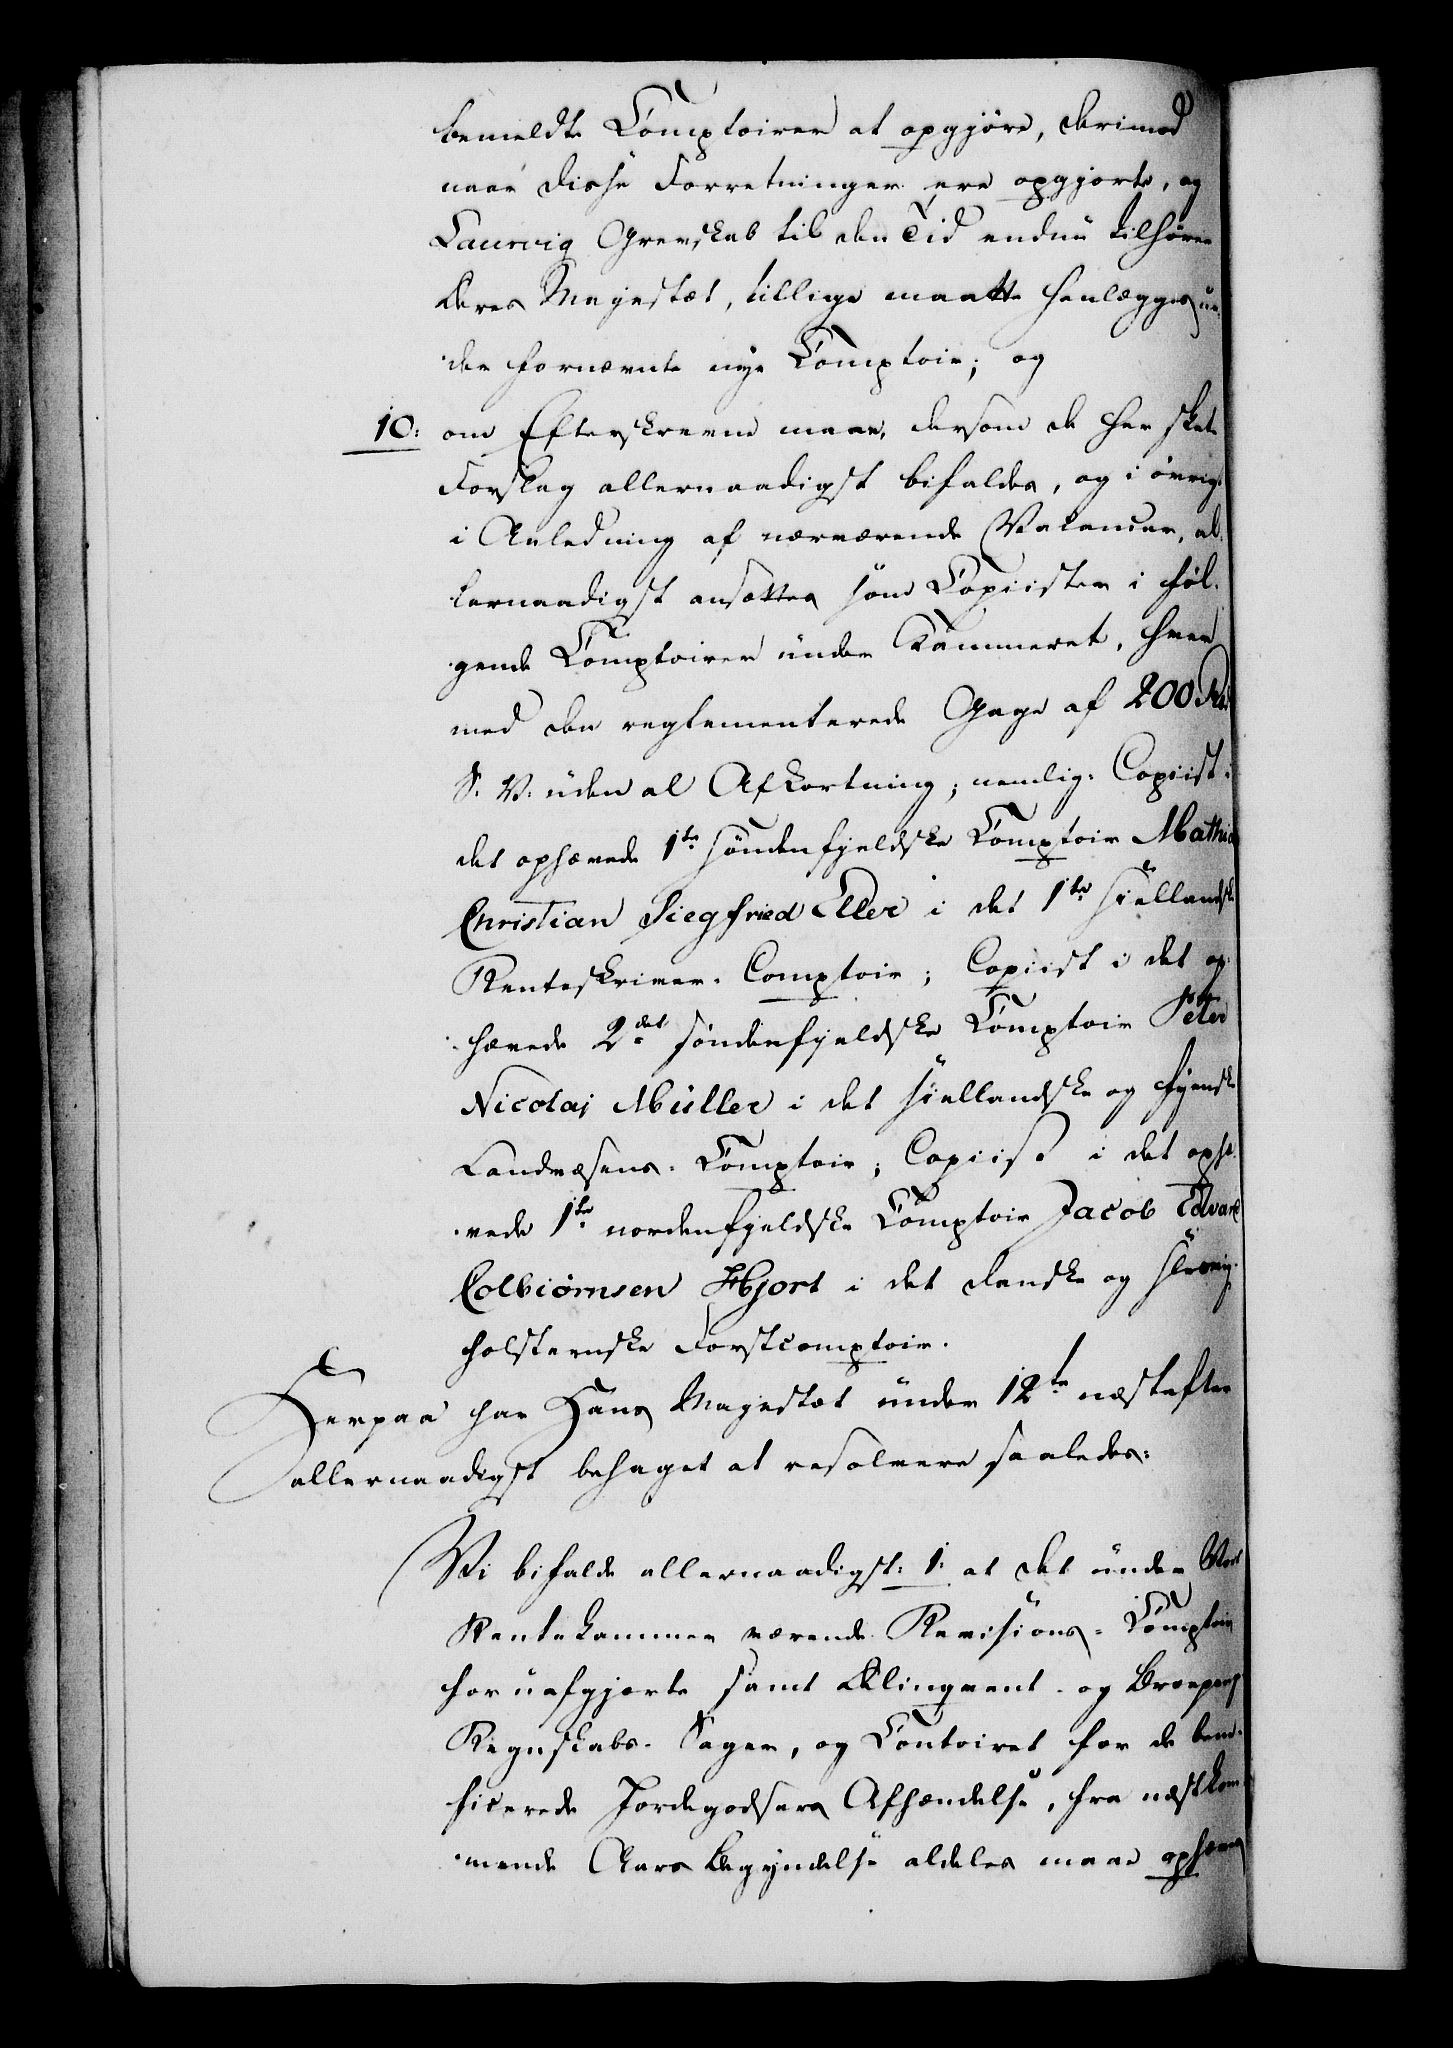 bemeldte Comptoirer at opgjøre, derimod
naar disse Forretninger ere opgjorte, og
Laurvig Grevskab til den Tid endnu tilhører
Deres Majestæt, tillige maatte henlægges un-
der fornævnte nye Comptoir; og
10: om Efterskrevne maae, dersom de her skete
Forslag allernaadigst bifaldes, og i øvrigt
i Anledning af nærværende Vakancer, al-
lernaadigst ansættes som Copiister i føl-
gende Comptoirer under Kammeret, hver
med den reglementerede Gage af 200 Rd
S. V. uden al Afkortning; nemlig: Copiist i
det ophævede 1te søndenfjeldske Comptoir Mathias
Christian Siegfried Eller i det 1te siellandske
Renteskriver-Comptoir; Copiist i det op-
hævede 2det søndenfjeldske Comptoir Peter
Nicolaj Müller i det siellandske og fyenske
Landvæsens-Comptoir; Copiist i det ophæ-
vede 1te nordenfjeldske Comptoir Jacob Edvard
Colbiørnsen Hjort i det danske og slesvig-
holsteenske Forstcomptoir.
Herpaa har Hans Majestæt under 12te næstefter
allernaadigst behaget at resolvere saaledes:
Vi bifalde allernaadigst: 1: at det under Vort
Rentekammer værende Revisions-Comptoir
for uafgjorte samt Delinqvent- og Brorpenge
Regnskabs-Sager, og Contoiret for de bene-
ficerede Jordegodsers Afhændelse, fra næstkom-
mende Aars Begyndelse aldeles maae ophæves